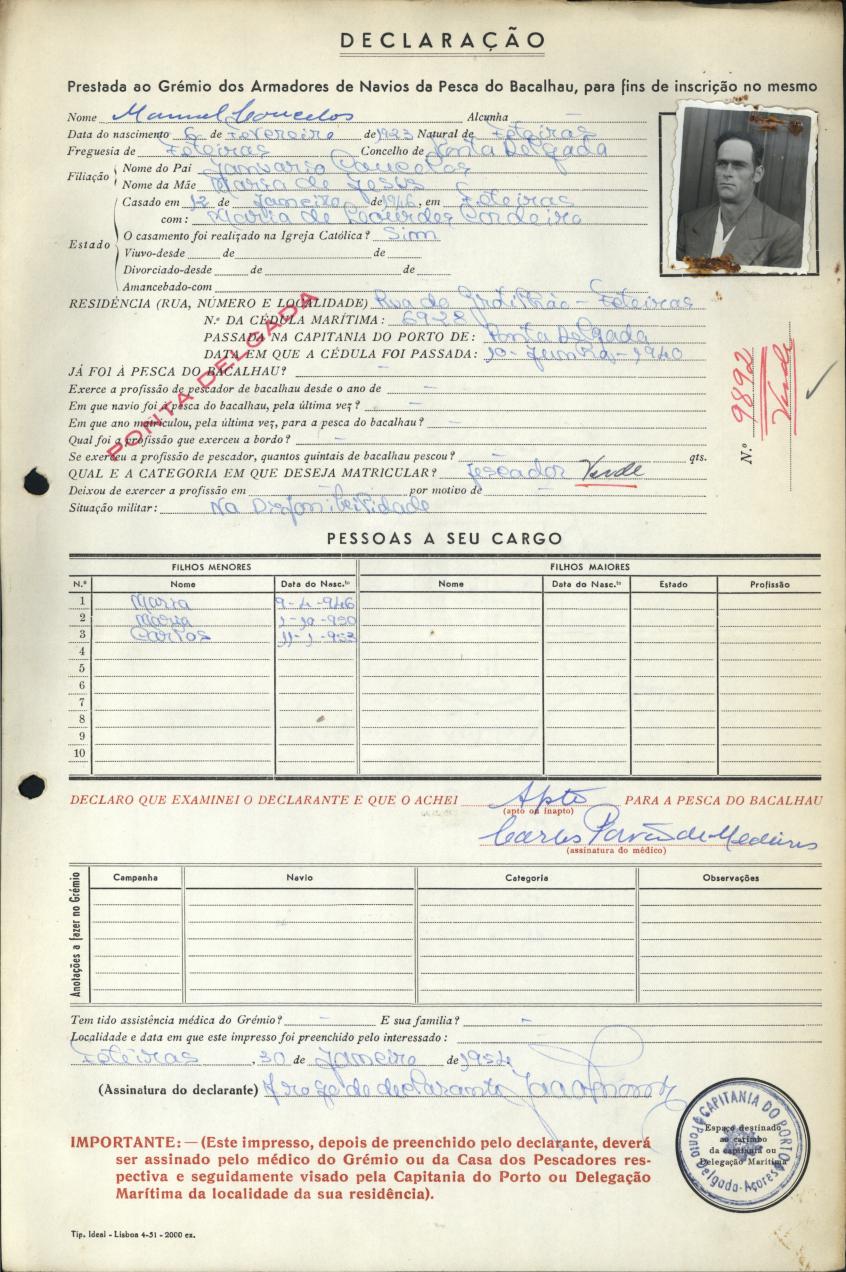 DECLARAÇÃO
Prestada ao Grémio dos Armadores de Navios da Pesca do Bacalhau, para fins de inscrição no mesmo
Nome Manuel Alcunha —
Data do nascimento 6 de Fevereiro de 1923 Natural de Feteiras
Freguesia de Feteiras Concelho de Ponta Delgada
Filiação
Nome do Pai Januario
Nome da Mãe Maria de Jesus
Estado
Casado em 12 de Janeiro de 1946, em Feteiras
com: Maria de Lourdes Cordeiro
O casamento foi realizado na Igreja Católica? Sim
Viuvo-desde de de
Divorciado-desde de de
Amancebado-com
RESIDÊNCIA (RUA, NÚMERO E LOCALIDADE) Rua do - Feteiras
N.º DA CÉDULA MARÍTIMA: 6928
PASSADA NA CAPITANIA DO PORTO DE: Ponta Delgada
DATA EM QUE A CÉDULA FOI PASSADA: 10-Junho-1940
PONTA DELGADA
JÁ FOI À PESCA DO BACALHAU? —
Exerce a profissão de pescador de bacalhau desde o ano de —
Em que navio foi à pesca do bacalhau, pela última vez? —
Em que ano matriculou, pela última vez, para a pesca do bacalhau? —
Qual foi a profissão que exerceu a bordo? —
Se exerceu a profissão de pescador, quantos quintais de bacalhau pescou? — qts.
QUAL E A CATEGORIA EM QUE DESEJA MATRICULAR? Pescador Verde
Deixou de exercer a profissão em — por motivo de —
Situação militar: Na Disponibilidade
N.º 9892
Verde
PESSOAS A SEU CARGO
FILHOS MENORES FILHOS MAIORES
N.º Nome Data do Nasc.to Nome Data do Nasc.to Estado Profissão
1 Maria 9-4-946
2 Maria 1-10-950
3 Carlos 11-1-953
4
5
6
7
8
9
10
DECLARO QUE EXAMINEI O DECLARANTE E QUE O ACHEI Apto PARA A PESCA DO BACALHAU
(apto ou inapto)
Carlos Pavão de Medeiros
(assinatura do médico)
Anotações a fazer no Grémio
Campanha Navio Categoria Observações
Tem tido assistência médica do Grémio? — E sua família? —
Localidade e data em que este impresso foi preenchido pelo interessado:
Feteiras, 30 de Janeiro de 1954
(Assinatura do declarante) A rogo do declarante
IMPORTANTE: — (Este impresso, depois de preenchido pelo declarante, deverá
ser assinado pelo médico do Grémio ou da Casa dos Pescadores res-
pectiva e seguidamente visado pela Capitania do Porto ou Delegação
Marítima da localidade da sua residência).
CAPITANIA DO PORTO
Ponta Delgada-Açores
Espaço destinado
ao carimbo
da capitania ou
Delegação Marítima
Tip. Ideal - Lisboa 4-51 - 2000 ex.